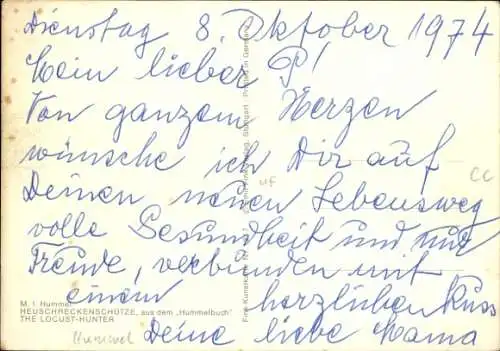 Dienstag 8. Oktober 1974
Mein lieber P!
Von ganzem Herzen
wünsche ich Dir auf
Deinen neuen Lebensweg
volle Gesundheit und nur
Freude, verbunden mit
einem herzlichen Kuss
Deine liebe Mama
M. I. Hummel
HEUSCHRECKENSCHÜTZE, aus dem „Hummelbuch“
THE LOCUST-HUNTER
Hummel
uf
CC
Stuttgart · Printed in Germany